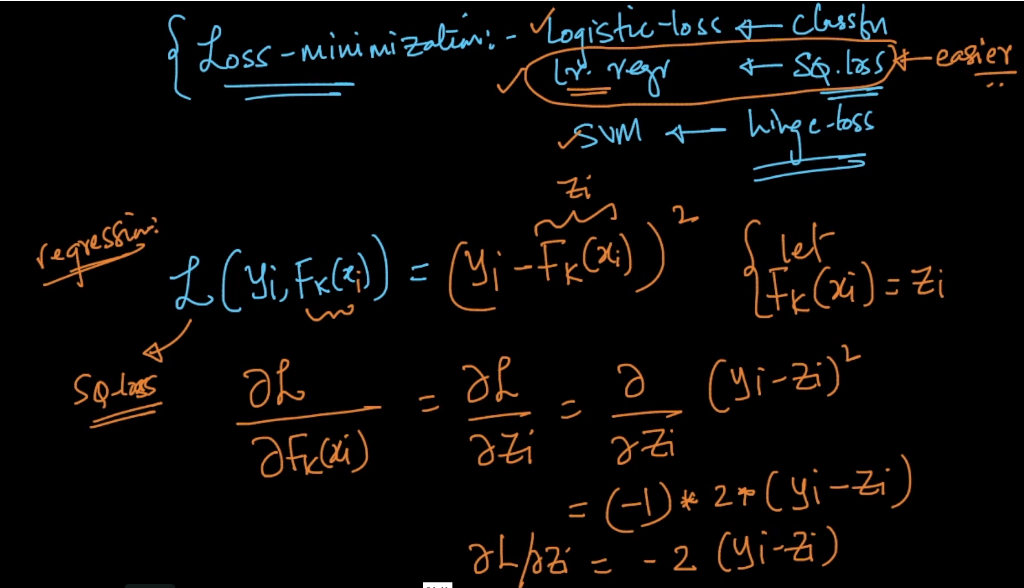 { Loss-minimization:- ✓Logistic-loss ← classfn
✓ Lr. regr ← SQ.loss ← easier
✓SVM ← hinge-loss
zi
regression:
L(yi, FK(xi)) = (yi - FK(xi))² { let
FK(xi) = zi
SQ-loss
∂L/∂FK(xi) = ∂L/∂zi = ∂/∂zi (yi-zi)²
= (-1) * 2 * (yi-zi)
∂L/∂zi = -2 (yi-zi)